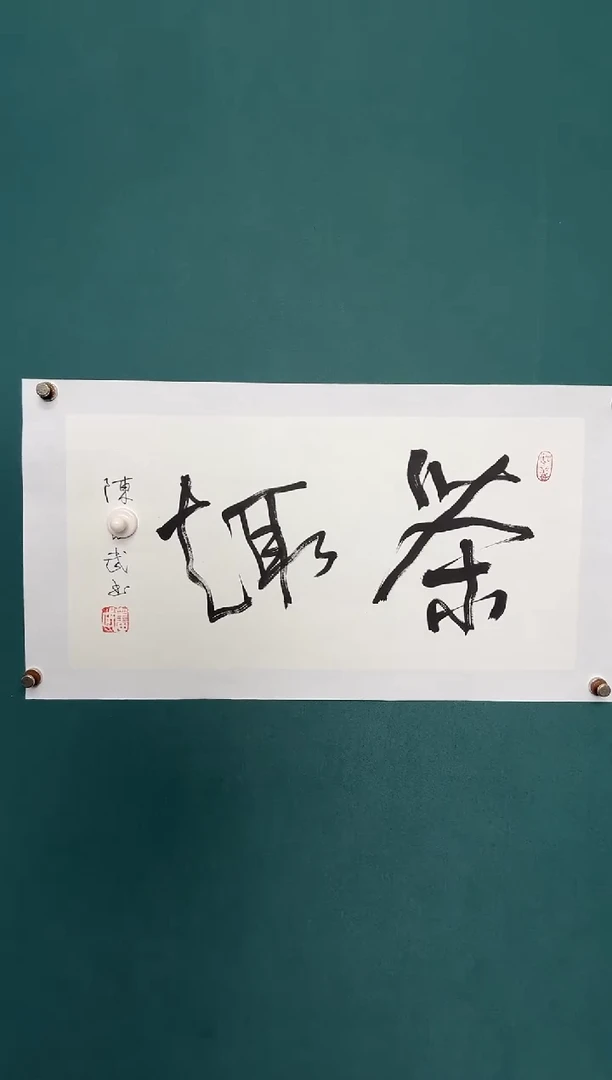 茶趣
陳武书